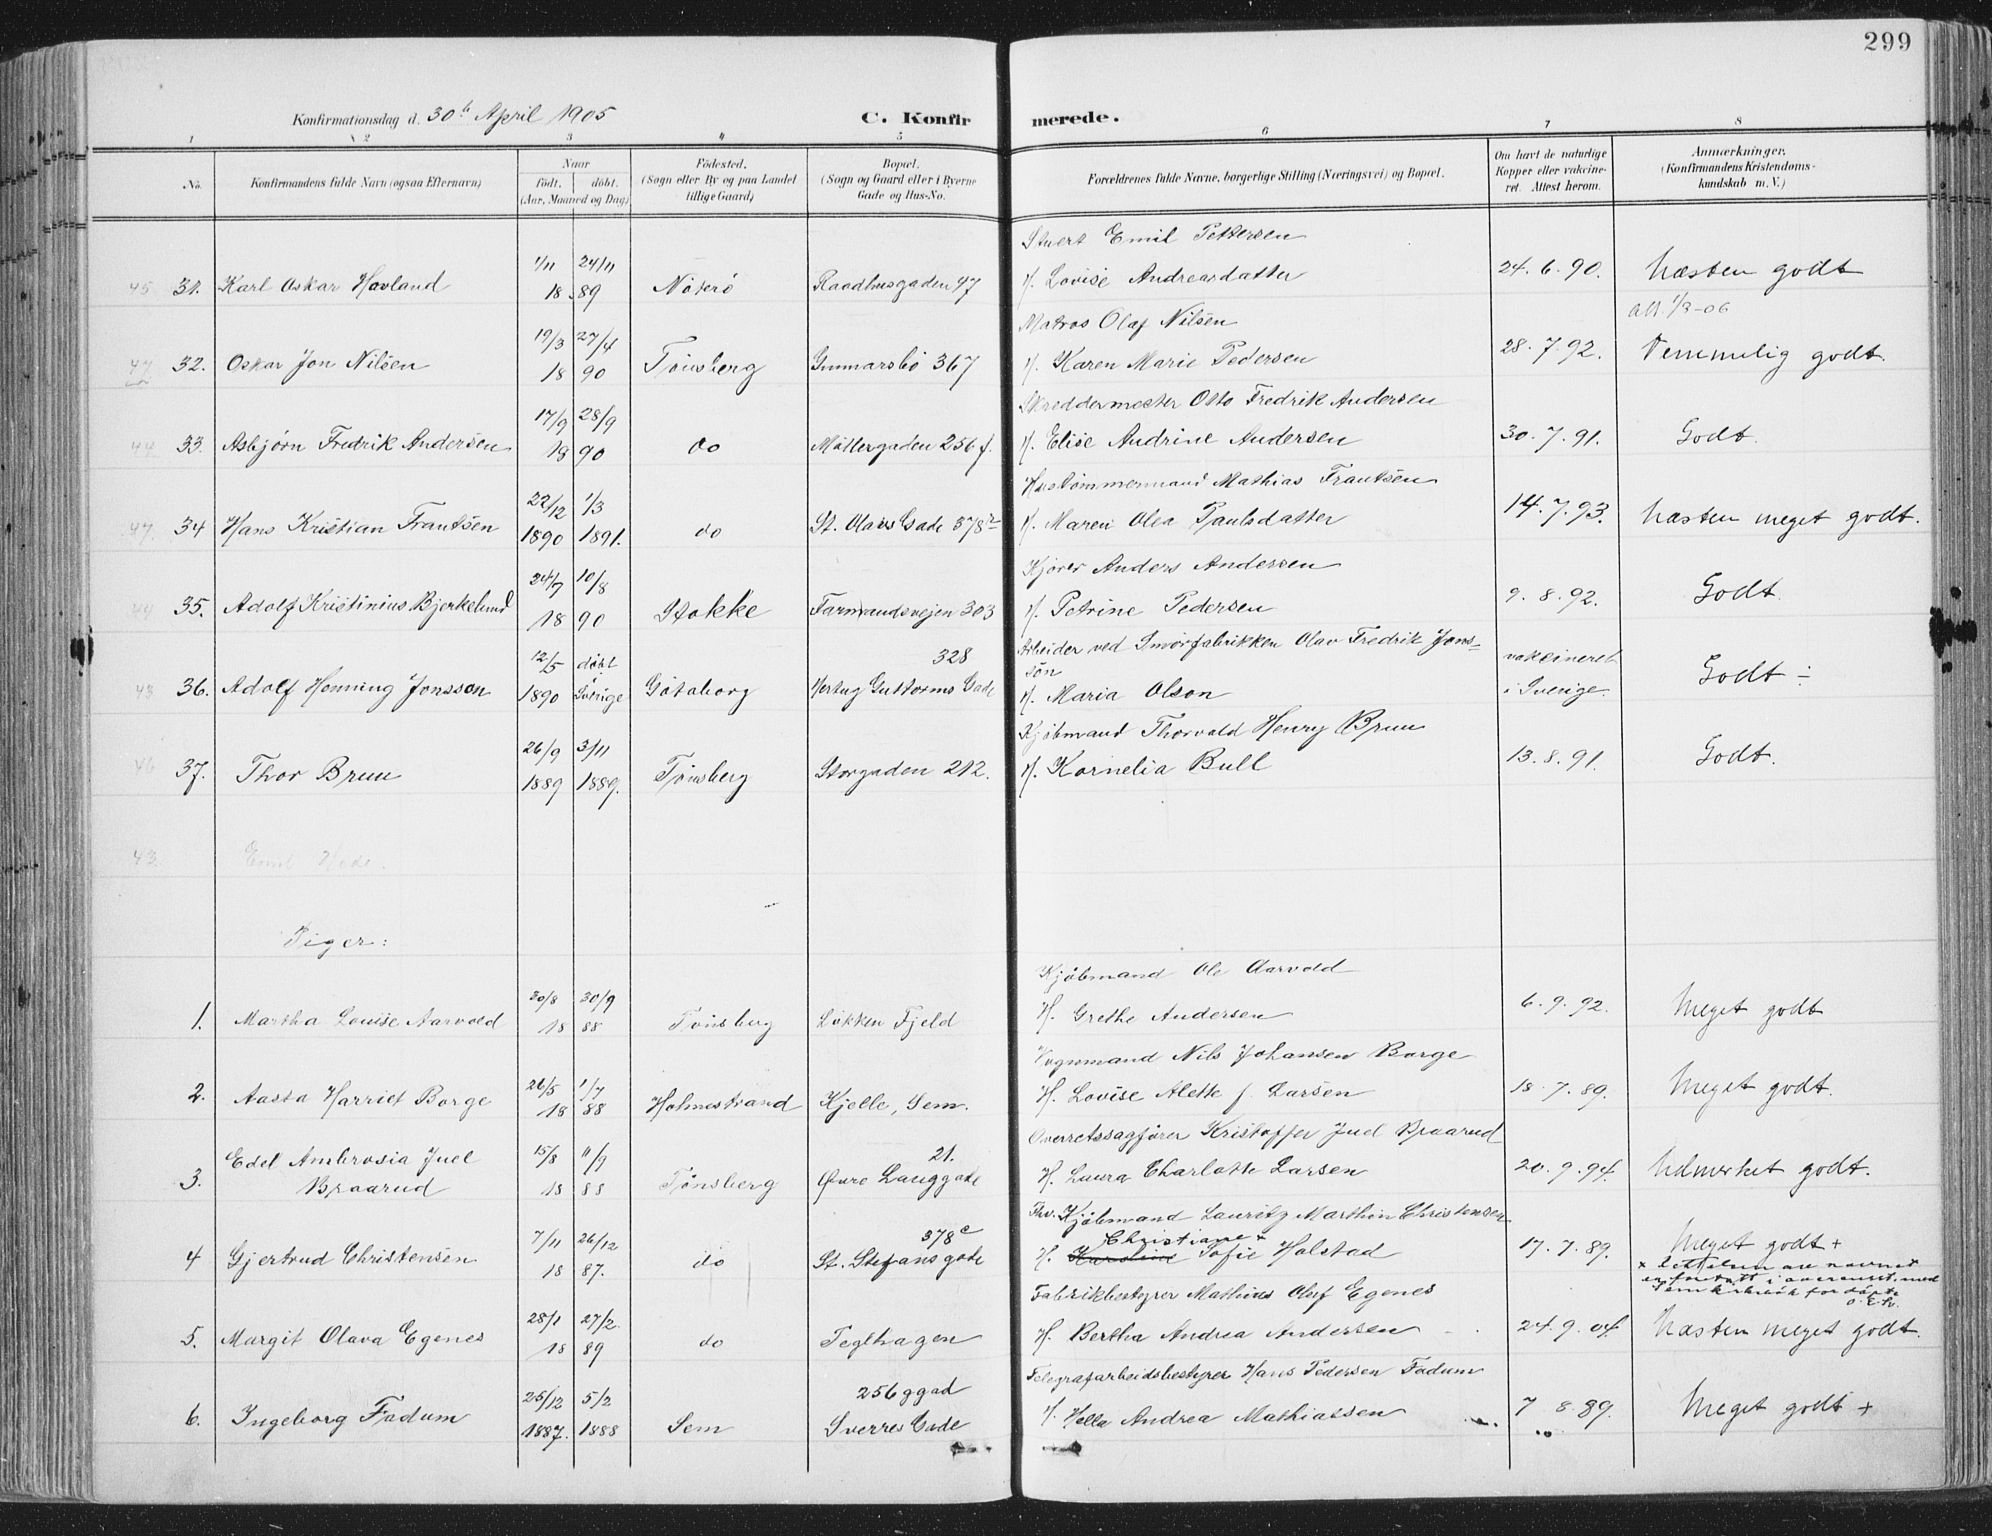 299
Konfirmationsdag d. 30te April 1905
C. Konfirmerede.
1 2 3 4 5 6 7 8
No.
Konfirmandens fulde Navn (ogsaa Efternavn)
Naar
födt. döbt.
(Aar, Maaned og Dag)
Födested.
(Sogn eller By og paa Landet
tillige Gaard)
Bopæl.
(Sogn og Gaard eller i Byerne
Gade og Hus-No.
Forældrenes fulde Navne, borgerlige Stilling (Næringsvei) og Bopæl.
Om havt de naturlige
Kopper eller vakcine-
ret. Attest herom.
Anmærkninger.
(Konfirmandens Kristendoms-
kundskab m. V.)
Stuert Emil Pettersen
45 31. Karl Oskar Hovland 1/11 24/11 18 89 Nöterö Raadhusgaden 97 H. Lovise Andreasdatter 24. 6. 90. Næsten godt
att. 1/3-06
Matros Olaf Nilsen
47 32. Oskar Jon Nilsen 19/3 27/4 18 90 Tönsberg Gunnarsbö 367 H. Karen Marie Pedersen 28. 7. 92. Temmelig godt.
Skreddermester Otto Fredrik Andersen
44 33. Asbjørn Fredrik Andersen 17/9 28/9 18 90 do Möllergaden 256 f. H. Elise Andrine Andersen 30. 7. 91. Godt.
Hustömmermand Mathias Frantsen
47. 34 Hans Kristian Frantsen 22/12 1/3 1890 1891. do St. Olavs Gade 378 H. Maren Olea Paulsdatter 14. 7. 93. Næsten meget godt.
Kjører Anders Andersen
44 35. Adolf Kristinius Bjerkelund 24/7 10/8 18 90 Stokke Farmandsvejen 303 H. Petrine Pedersen 9. 8. 92. Godt.
Arbeider ved Smörfabrikken Olav Fredrik Jons-
sön
48 36. Adolf Henning Jonsson 12/5 döbt i 1890 Sverige Götaborg 328 Hertug Guttorms Gade H. Maria Olson vakcineret i Sverige. Godt ÷
Kjöbmand Thorvald Henry Bruu
46 37. Thor Bruu 26/9 3/11 1889 1889. Tönsberg Storgaden 212. H. Kornelia Bull 13. 8. 91. Godt.
43 Emil
Piger:
Kjöbmand Ole Aarvold
1. Martha Louise Aarvold 30/8 30/9 18 88 Tönsberg Løkken Fjeld H. Grethe Andersen 6. 9. 92. Meget godt
Vognmand Nils Johansen Borge
2. Aasta Harriet Borge 26/5 1/7 18 88 Holmestrand Kjelle, Sem. H. Lovise Alette f. Larsen 18. 7. 89. Meget godt.
Overretssagförer Kristoffer Juel Braarud
3. Edel Ambrosia Juel Braarud 15/8 11/9 18 88 Tönsberg 21. Øvre Langgade H. Laura Charlotte Larsen 20. 9. 94. Udmerket godt.
Fhv. Kjöbmand Lauritz Marthin Christensen
Christiane +
4 Gjertrud Christensen 7/11 26/12 18 87. do 378c St. Stefansgade H. Karoline Sofie Holstad 17. 7. 89. Meget godt +
Fabrikbestyrer Mathius Oluf Egenes
5. Margit Olava Egenes 28/1 27/2. 18 89 do Teglhagen H. Bertha Andrea Andersen 24. 9. 04. Næsten meget godt.
Telegrafarbeidsbestyrer Hans Pedersen Fadum
6. Ingeborg Fadum 25/12 5/2 1887. 1888 Sem 256 ggad Sverres Gade H. Hella Andrea Mathiassen 7 8. 89. Meget godt +